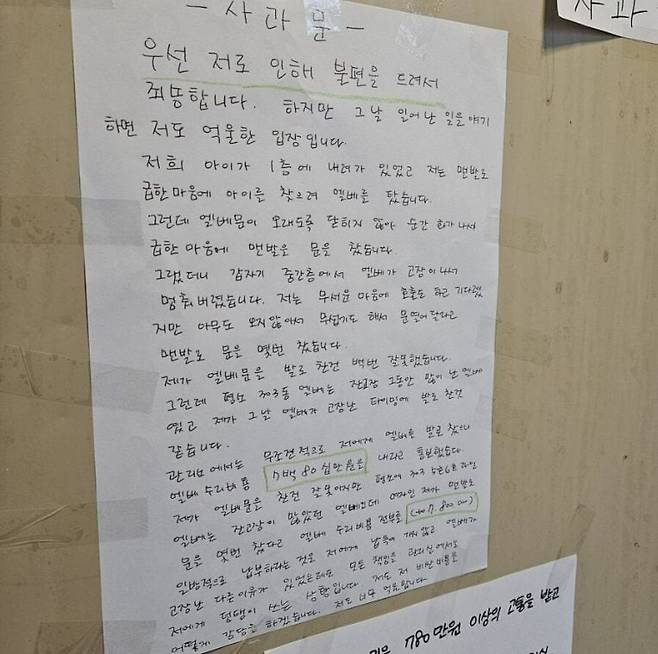 - 사과문 -
사과
우선 저로 인해 불편을 드려서
죄송합니다. 하지만 그날 일어난 일을 얘기
하면 저도 억울한 입장입니다.
저희 아이가 1층에 내려가 있었고 저는 맨발로
급한마음에 아이를 찾으려 엘베를 탔습니다.
그런데 엘베문이 오래도록 닫히지 않아 순간 화가 나서
급한 마음에 맨발로 문을 찼습니다.
그랬더니 갑자기 중간층에서 엘베가 고장이나서
멈춰버렸습니다. 저는 무서운 마음에 호출도 하고 기다렸
지만 아무도 오지않아서 무섭기도 해서 문열어달라고
맨발로 문을 몇번 찼습니다.
제가 엘베문을 발로 찬건 백번 잘못했습니다.
그런데 평소 303동 엘베는 잔고장 그동안 많이 난 엘베
였고 제가 그날 엘베가 고장난 타이밍에 발로 찬건
같습니다.
관리소에서는 무조건적으로 저에게 엘베를 발로 찼으니
엘베 수리비용 7백80십만원을 내라고 통보했습니다.
제가 엘베문을 찬건 잘못이지만 평소에 303
엘베는 잔고장이 많았던 엘베인데 여자인 제가 맨발로
문을 몇번 찼다고 엘베 수리비용 전부를
일방적으로 납부하라는 것은 저에게 납득이 가지 않고 엘베가
고장난 다른이유가 있었는데도 모든 책임을 관리실에서는
저에게 덤탱이 쓰는 상황입니다. 저도 저 비싼비용을
어떻게 감당을 하겠습니까. 저도 너무 억울합니다.
780만원 이상의 고통을 받고